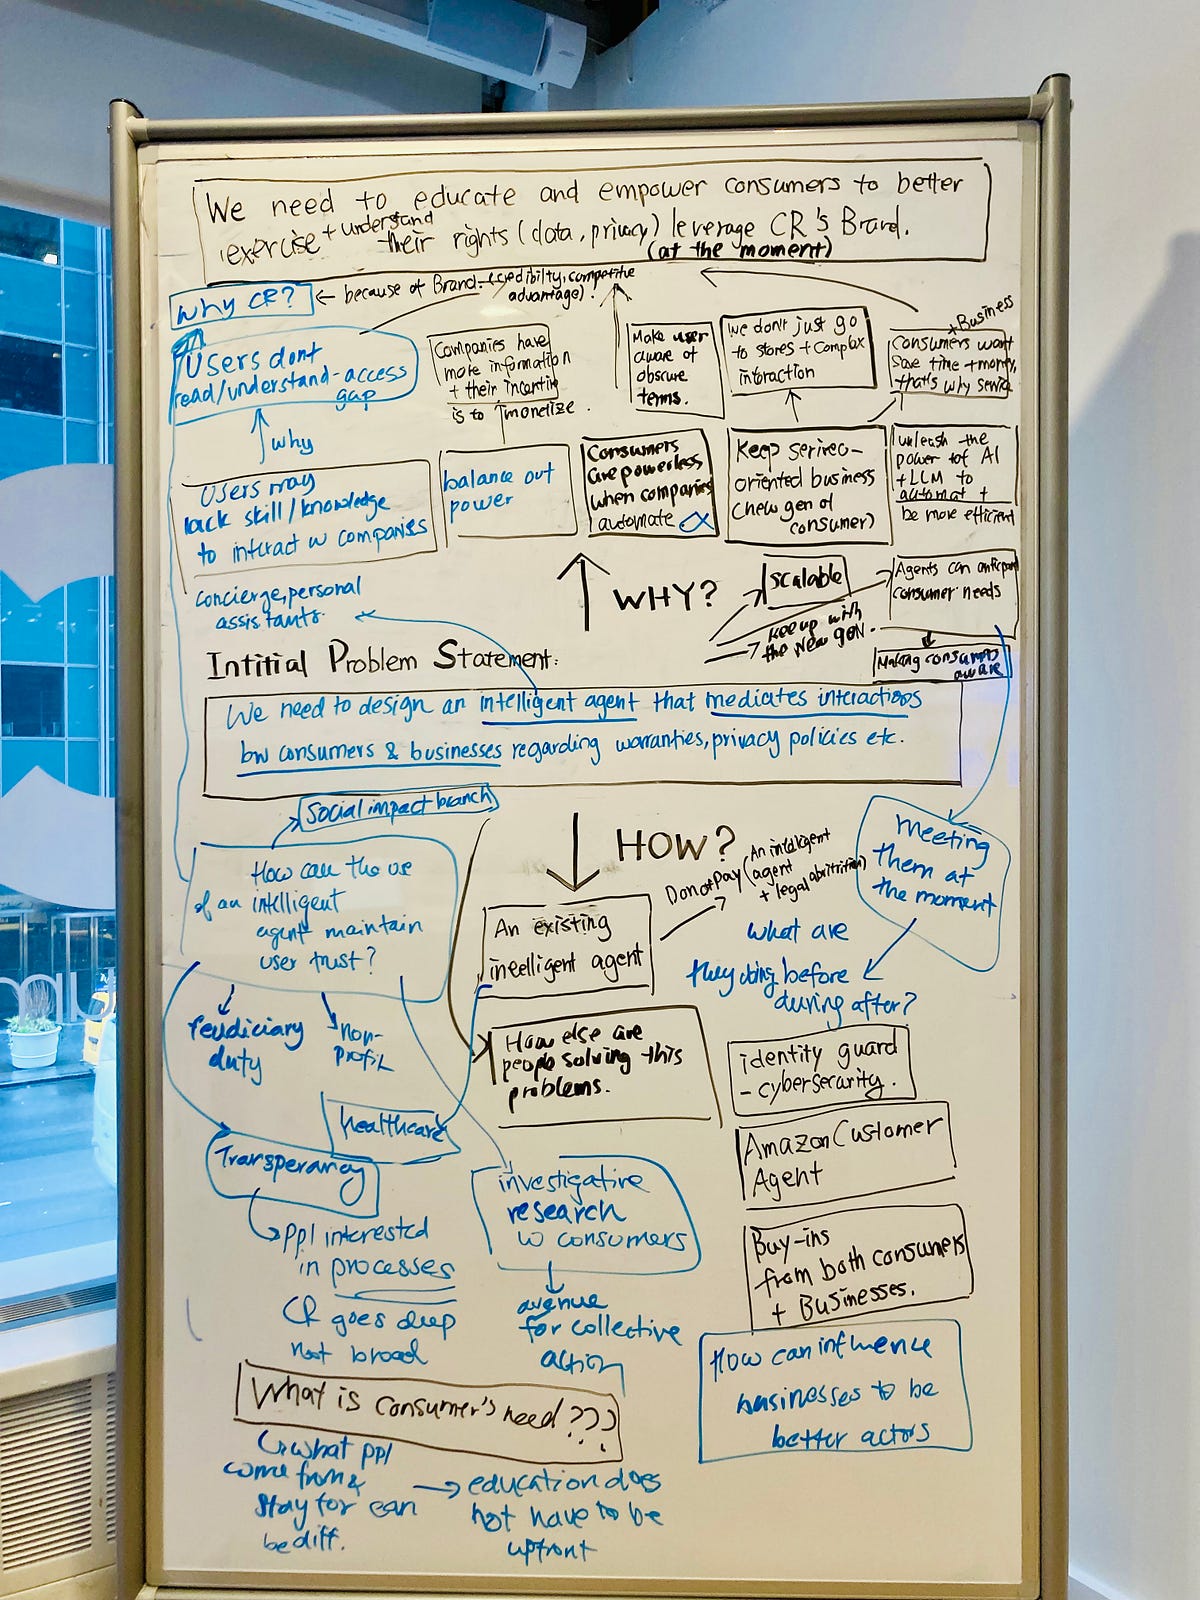 We need to educate and empower consumers to better
exercise + understand their rights (data, privacy) leverage CR's Brand.
(at the moment)
Why CR?
← because of Brand - (credibilty, competitive
advantage).
Users dont
read/understand - access
gap
Companies have
more information
+ their incentiv
is to monetize.
Make user
aware of
obscure
terms.
We don't just go
to stores + complex
interaction
+ Business
Consumers want
Save time + money,
that's why servic
why
Users may
lack skill/knowledge
to interact w companies
balance out
power
Consumers
are powerless
when companies
automate
Keep
oriented business
(new gen of
consumer)
unleash the
power of AI
+ LLM to
automat +
be more efficient
concierge, personal
assistants
WHY?
Scalable
Keep up with
the new gen.
Agents can anticipat
consumer needs
Making consumers
aware
Intitial Problem Statement:
We need to design an intelligent agent that mediates interactions
bw consumers & businesses regarding warranties, privacy policies etc.
Social impact branch
How can the use
of an intelligent
agent maintain
user trust?
HOW?
DonotPay (An intelligent
agent
+ legal
Meeting
them at
the moment
An existing
intelligent agent
what are
they doing before
during after?
feudiciary
duty
non-
profit
How else are
people solving this
problems.
identity guard
- cybersecurity.
healthcare
Transperancy
Amazon Customer
Agent
investigative
research
w consumers
ppl interested
in processes
CR goes deep
not broad
Buy-ins
from both consumers
+ Businesses.
avenue
for collective
action
How can influence
businesses to be
better actors
What is consumer's need???
what ppl
come from &
stay for can
be diff.
→ education does
not have to be
upfront